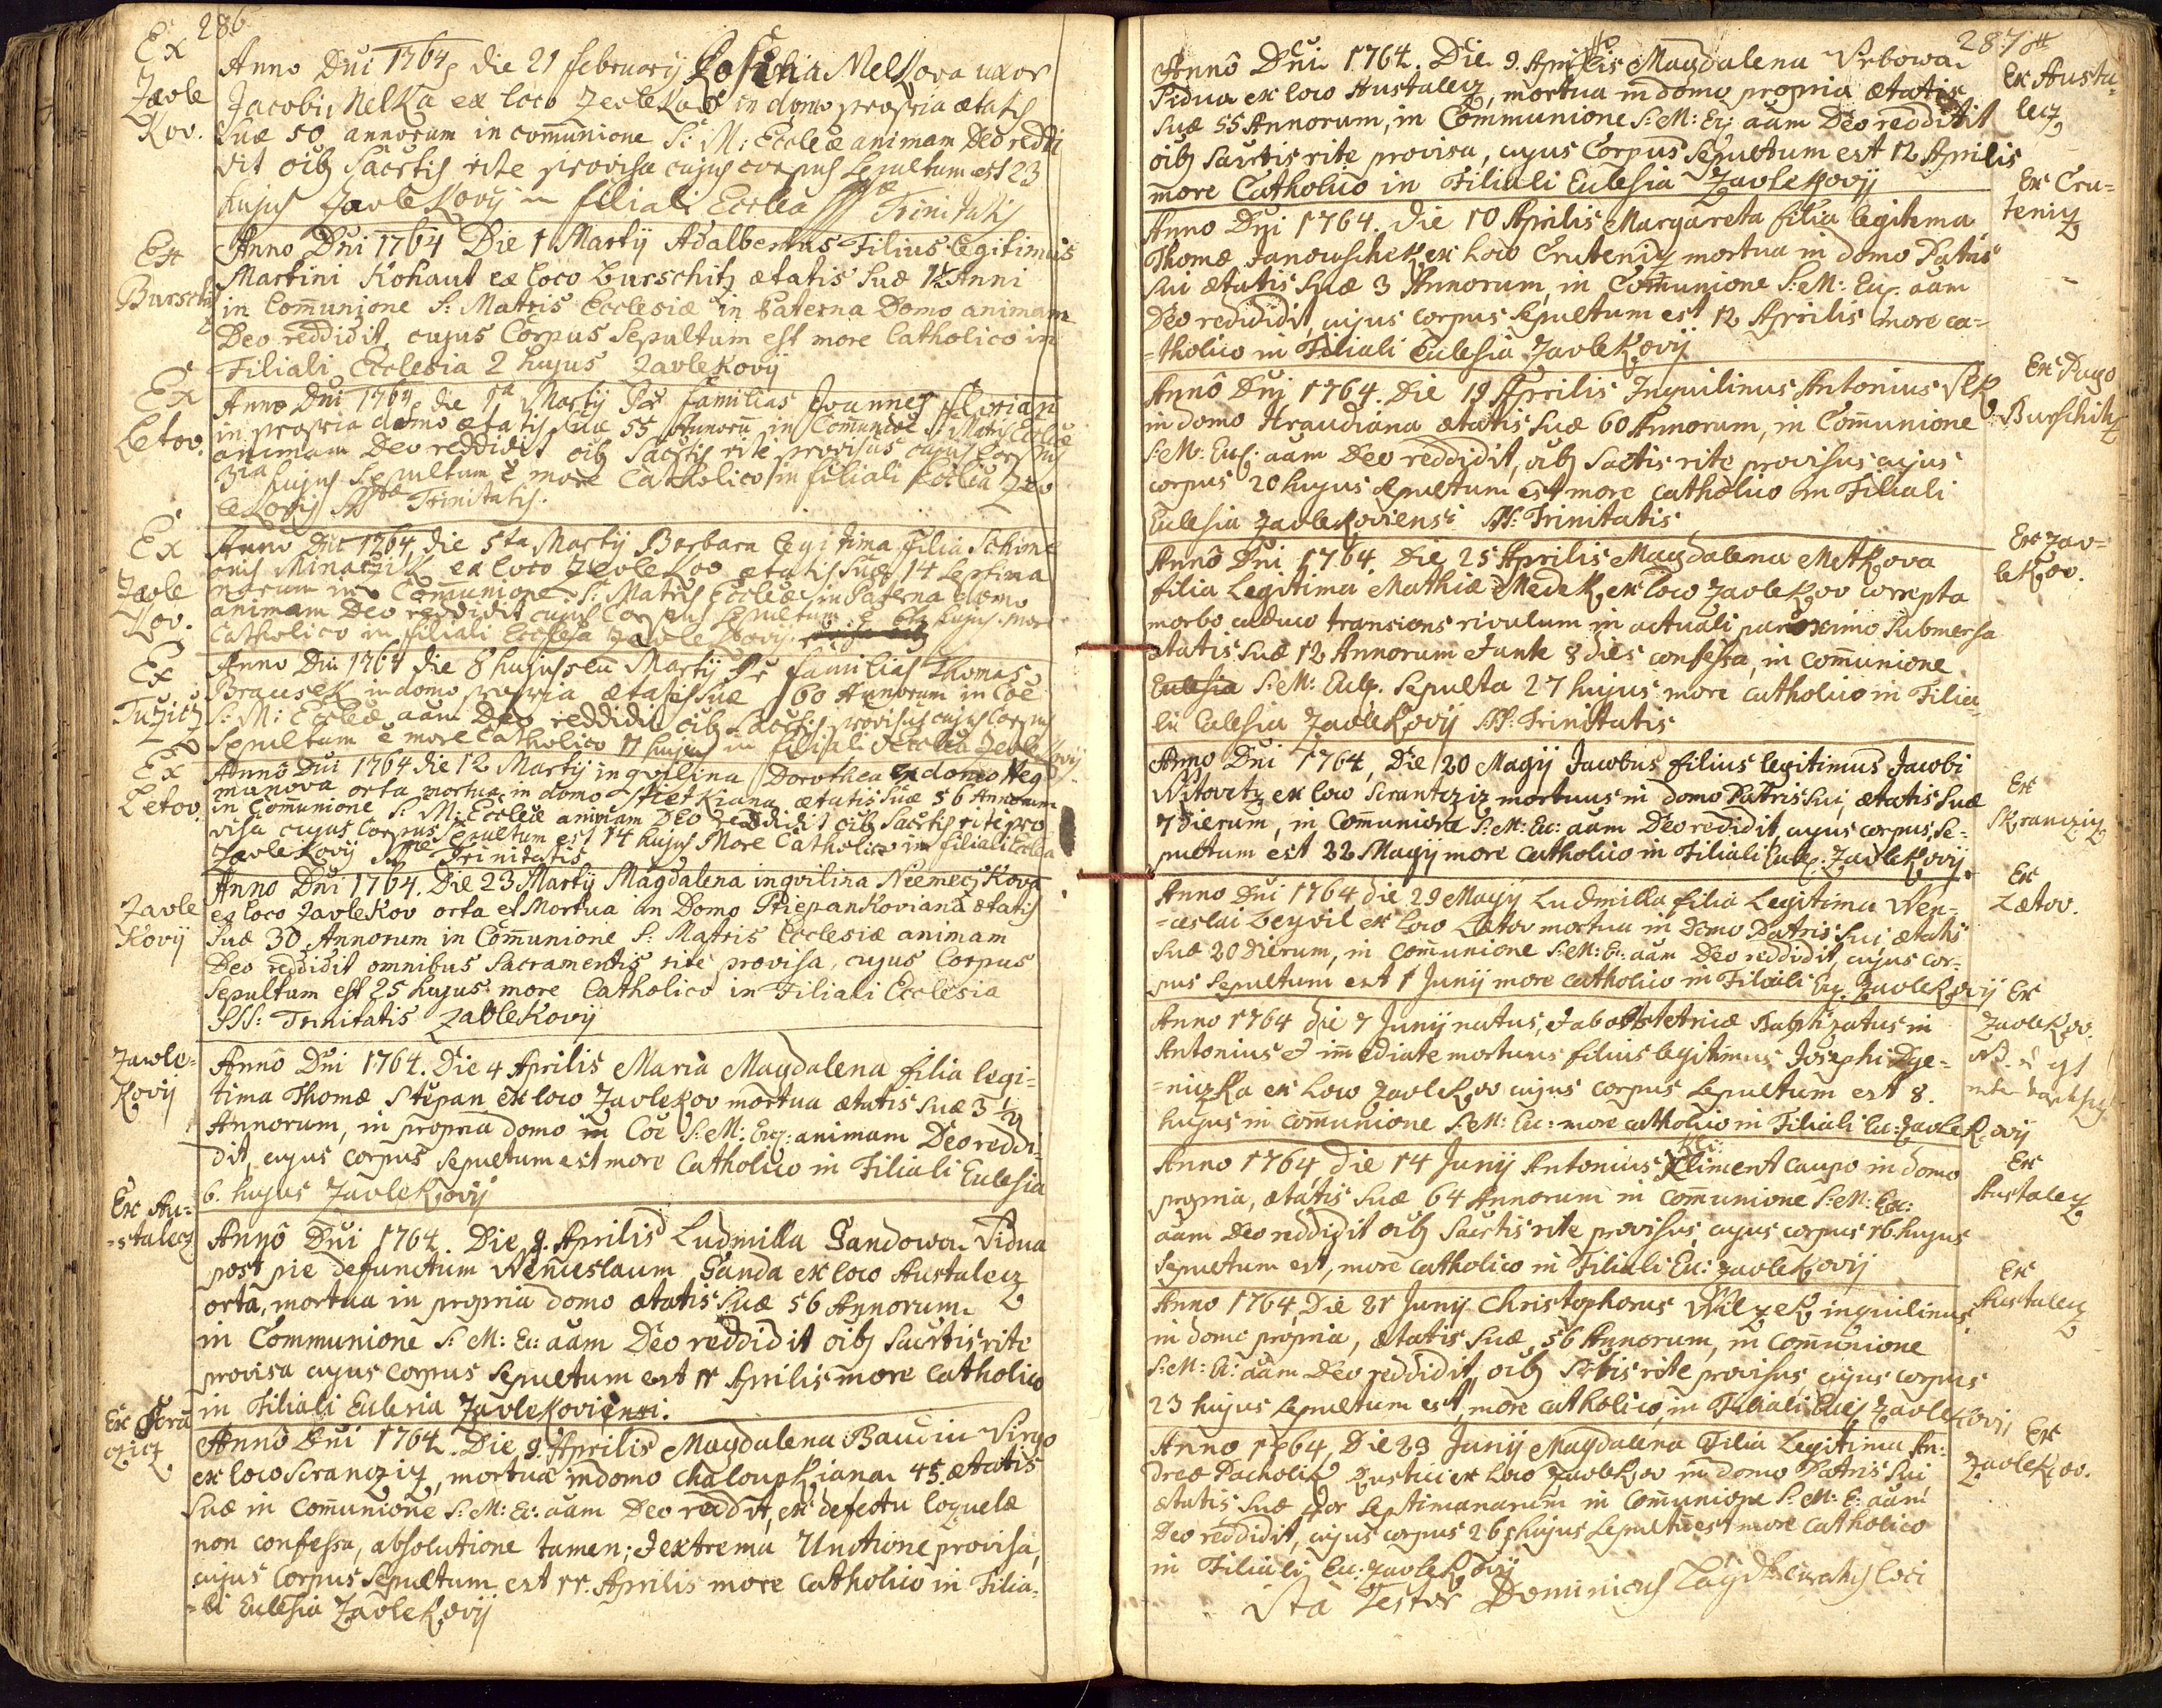 286
Ex
Zavle
Kov.
Anno Dni 1764 die 21 february Rosina Nelkova uxor
Jacobi Nelka ex loco Zevlekov in domo propria ætatis
Suæ 50 annorum in comunione S: M: Eccleæ animam Deo reddi
dit oibz Sacrtis rite provisa cujus corpus Sepultum est 23
hujus Zavlekovij in filiali Ecclea SSmæ Trinitatis
Ex
Burschitz
Anno Dni 1764 Die 1 Martij Adalbertus Filius Legitimus
Martini Kohaut ex loco Burschitz ætatis Suæ 1½ Anni
in Comunione S: Matris Ecclesiæ in Paterna Domo animam
Deo reddidit, cujus Corpus Sepultum est more Catholico in
Filiali Ecclesia 2 hujus Zavlekovij
Ex
Letov.
Anno Dni 1764 die 1ma Martij Pr familias Joannes Florian
in propria domo ætatis Suæ 55 Annoru in Comunioe S: Matris Eccleæ
animam Deo reddidit oibz Sacrtis rite provisus cujus Corpus
3tia hujus Sepultum e more Catholico in filiali Ecclea Zav
lekovij SSmæ Trinitatis.
Ex
Zavle
kov.
Anno Dni 1764 die 5ta Martij Barbara legitima filia Schime
onis Minarzik ex loco Zevlekov ætatis Suæ 14 Septima
narum in Comunione S: Matris Eccleæ in Paterna domo
animam Deo reddidit cujus Corpus Sepultum e 6ta hujus more
Catholico in filiali Ecclesia Zavlekovij.
Ex
Tuzicz
Anno Dni 1764 die 8 hujus seu Martij Pr familias Thomas
Brausek in domo propria ætatis Suæ 60 Annorum in Coe
S: M: Eccleæ aam Deo reddidit oibz Sacrtis provisus cujus Corpus
Sepultum e more Catholico 11 hujus in filiali Ecclea Zevlekovij
Ex
Letov.
Anno Dni 1764 die 12 Martij inqvilina Dorothea in domo Heg
manova orta mortua in domo Stietkiana ætatis Suæ 56 Annorum
in Comunione S: M: Eccleæ animam Deo reddidit oibz Sacrtis rite pro
visa cujus Corpus Sepultum est 14 hujus More Catholico in filiali Ecclea
Zavlekovij SSmæ Trinitatis
Zavle
Kovij
Anno Dni 1764. Die 23 Martij Magdalena inqvilina Neemeczkova
ex loco Zavlekov orta et Mortua in Domo Stiepankoviana ætatis
Suæ 30 Annorum in Comunione S: Matris Ecclesiæ animam
Deo reddidit omnibus Sacramentis rite provisa, cujus Corpus
Sepultum est 25 hujus more Catholico in Filiali Ecclesia
SSS: Trinitatis Zavlekovij
Zawle-
kovij
Annô Dni 1764. Die 4 Aprilis Maria Magdalena filia legi=
tima Thomæ Stépan ex loco Zavlekov mortua ætatis suæ 3 ½
Annorum, in propria domo in Coe S: M: Ecc: animam Deo reddi-
dit, cujus corpus sepultum est more Catholico in Filiali Eccelsia
6. hujus Zavlekovij
Ex Au=
=stalecz
Annô Dni 1764. Die 9. Aprilis Ludmilla Sandowa Vidua
post pie defunctum Wenceslaum Sanda ex loco Austalecz
orta, mortua in propria domo ætatis suæ 56 Annorum
in Communione S: M: Ec: aam Deo reddidit oibz Sacrtis rite
provisa cujus corpus sepultum est 11 Aprilis more catholico
in Filiali Ecclesia Zavlekoviensi.
Ex Scra
czicz
Annô Dni 1764. Die 9. Aprilis Magdalena Baudin Virgo
ex loco Scranczicz, mortua in domo Chaloupkiana 45 ætatis
Suæ in Comunione S: M: Ec: aam Deo reddit, ex defectu loquelæ
non confessa, absolutione tamen; & extrema Unctione provisa,
cujus Corpus Sepultum est 11. Aprilis more Catholico in Filia-
=li Ecclesia Zavlekovij
287
Annô Dni 1764. Die 9. Aprilis Magdalena Vrbowa
Vidua ex loco Austalecz, mortua in domo propria ætatis
suæ 55 Annorum, in Communione S: M: Ec: aam Deo reddidit
oibz Sacrtis rite provisa, cujus Corpus Sepultum est 12 Aprilis
more Catholico in Filiali Ecclesia Zavlekovij
Ex Austa-
lecz
Anno Dni 1764. Die 10 Aprilis Margareta filia legitima
Thomæ Janowschek ex loco Crutenicz mortua in domo Patris
sui ætatis suæ 3 Annorum, in Comunione S: M: Ec: aam
Deo redididit, cujus corpus sepultum est 12 Aprilis more ca=
=tholico in Filiali Ecclesia Zavlekovij
Ex Cru=
tenicz
Annô Dni 1764. Die 19 Aprilis Inquilinus Antonius Vlk
in domo Hraudiana ætatis suæ 60 Annorum, in Comunione
S: M: Ecc: aam Deo reddidit, oibz Sactis rite provisus cujus
corpus 20 hujus sepultum est more catholico in Filiali
Ecclesia Zavlekoviensi SS: Trinitatis
Ex Pago
Burschitz
Annô Dni 1764. Die 25 Aprilis Magdalena Metkova
filia Legitima Mathiæ Medek ex loco Zavlekov correpta
morbo caduco transiens rivulum in actuali paroximo submersa
ætatis suæ 12 Annorum & ante 8 dies confessa, in comunione
Ecclesia S: M: Ecc: sepulta 27 hujus more catholico in Filia=
li Ecclesia Zavlekovij SS: Trinitatis
Ex Zav=
lekov.
Anno Dni 1764, Die 20 Magij Jacobus filius legitimus Jacobi
Witovetz ex loco Scrantcziz mortuus in domo Patris sui, ætatis suæ
7 dierum, in Comunione S: M: Ec: aam Deo redidit, cujus corpus se=
pultum est 22 Magij more catholico in Filiali Ecc: Zavlekovij.
Ex
Skranczicz
Anno Dni 1764 die 29 Magij Ludmilla filia Legitima Wen-
=ceslai Beyvil ex loco Lætov mortua in domo Patris sui, ætatis
suæ 20 dierum, in comunione S: M: Ec: aam Deo reddidit, cujus cor-
pus sepultum est 1 Junij more catholico in Filiali Ec: Zavlekovij
Ex
Lætov.
Anno 1764 die 7 Junij natus, & ab obstetrice Baptizatus in
Antonius & imediate mortuus filius legitimus Josephi Dye-
=niczka ex loco Zavlekov cujus corpus sepultum est 8.
hujus in comunione S: M: Ec: more catholico in Filiali Ec: Zavlekovij
Ex
Zavlekov.
Anno 1764, die 14 Junij Antonius Kliment caupo in domo
propria, ætatis suæ 64 Annorum in comunione S: M: Ec:
aam Deo reddidit oibz Sacrtis rite provisus, cujus corpus 16 hujus
sepultum est, more catholico in Filiali Ec: Zavlekovij
Ex
Austalecz
Anno 1764, Die 21 Junij Christophorus Wilzek inquilinus
in domo propria, ætatis suæ, 56 Annorum, in comunione
S: M: Ec: aam Deo reddidit, oibz Scrtis rite provisus, cujus corpus
23 hujus sepultum est, more catholico, in Filiali Ecc: Zavlekovij
Ex
Austalecz
Anno 1764, Die 23 Junij Magdalena Filia Legitima An:
dreæ Pacholik Rustici ex loco Zavlekov in domo Patris sui
ætatis suæ 4or septimanarum in Comunione S: M: E: aam
Deo reddidit, cujus corpus 26 hujus sepultu est more catholico
in Filiali Ec: Zavlekovij
Ex
Zavlekov.
Ita Testor Dominicus Curatus loci